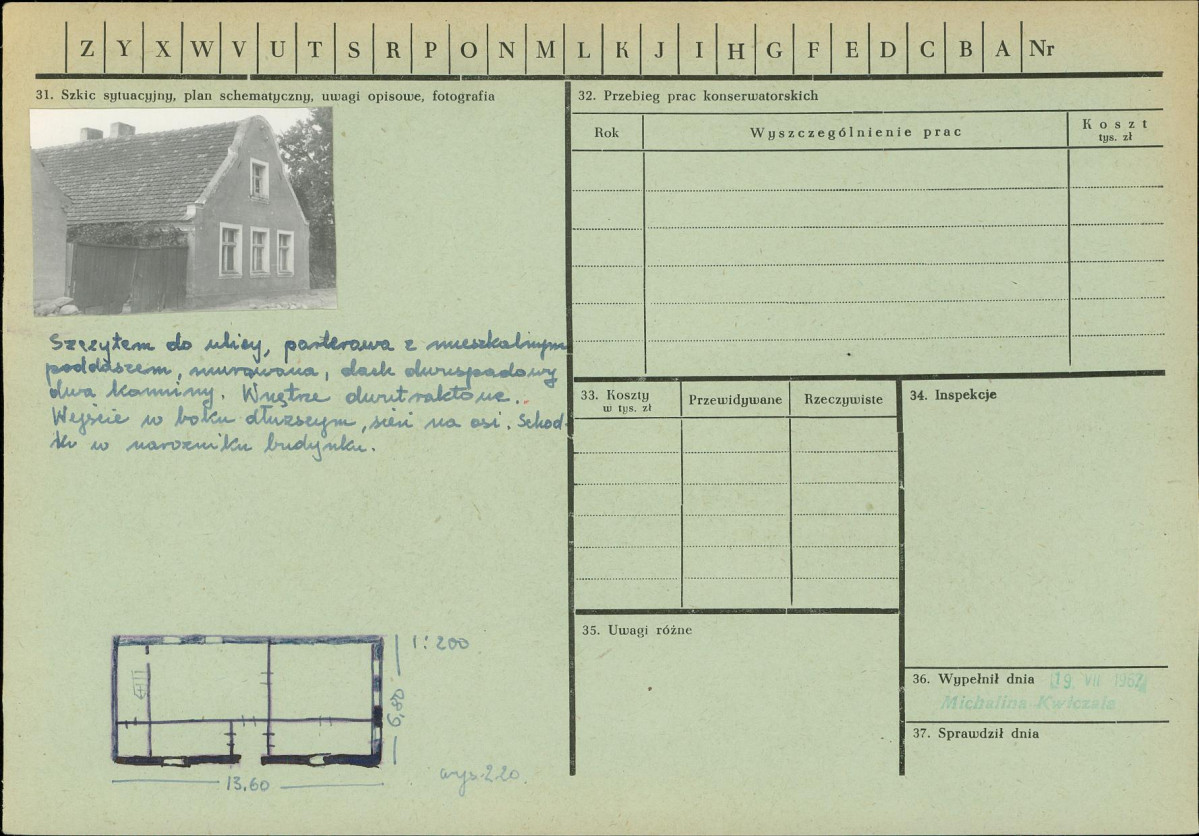 Z Y X W V U T S R P O N M L K J I H G F E D C B A Nr
31. Szkic sytuacyjny, plan schematyczny, uwagi opisowe, fotografia
Szczytem do ulicy, parterowa z mieszkalnym
poddaszem, murowana, dach dwuspadowy
dwa kominy. Wnętrze dwutraktowe.
Wejście w boku dłuższym, sień na osi. Schod-
ki w narożniku budynku.
1:200
6,80
13,60
wys. 2.20
32. Przebieg prac konserwatorskich
Rok
Wyszczególnienie prac
Koszt
tys. zł
33. Koszty
w tys. zł
Przewidywane
Rzeczywiste
34. Inspekcje
35. Uwagi różne
36. Wypełnił dnia 19 VII 1967
Michalina Kwiczala
37. Sprawdził dnia